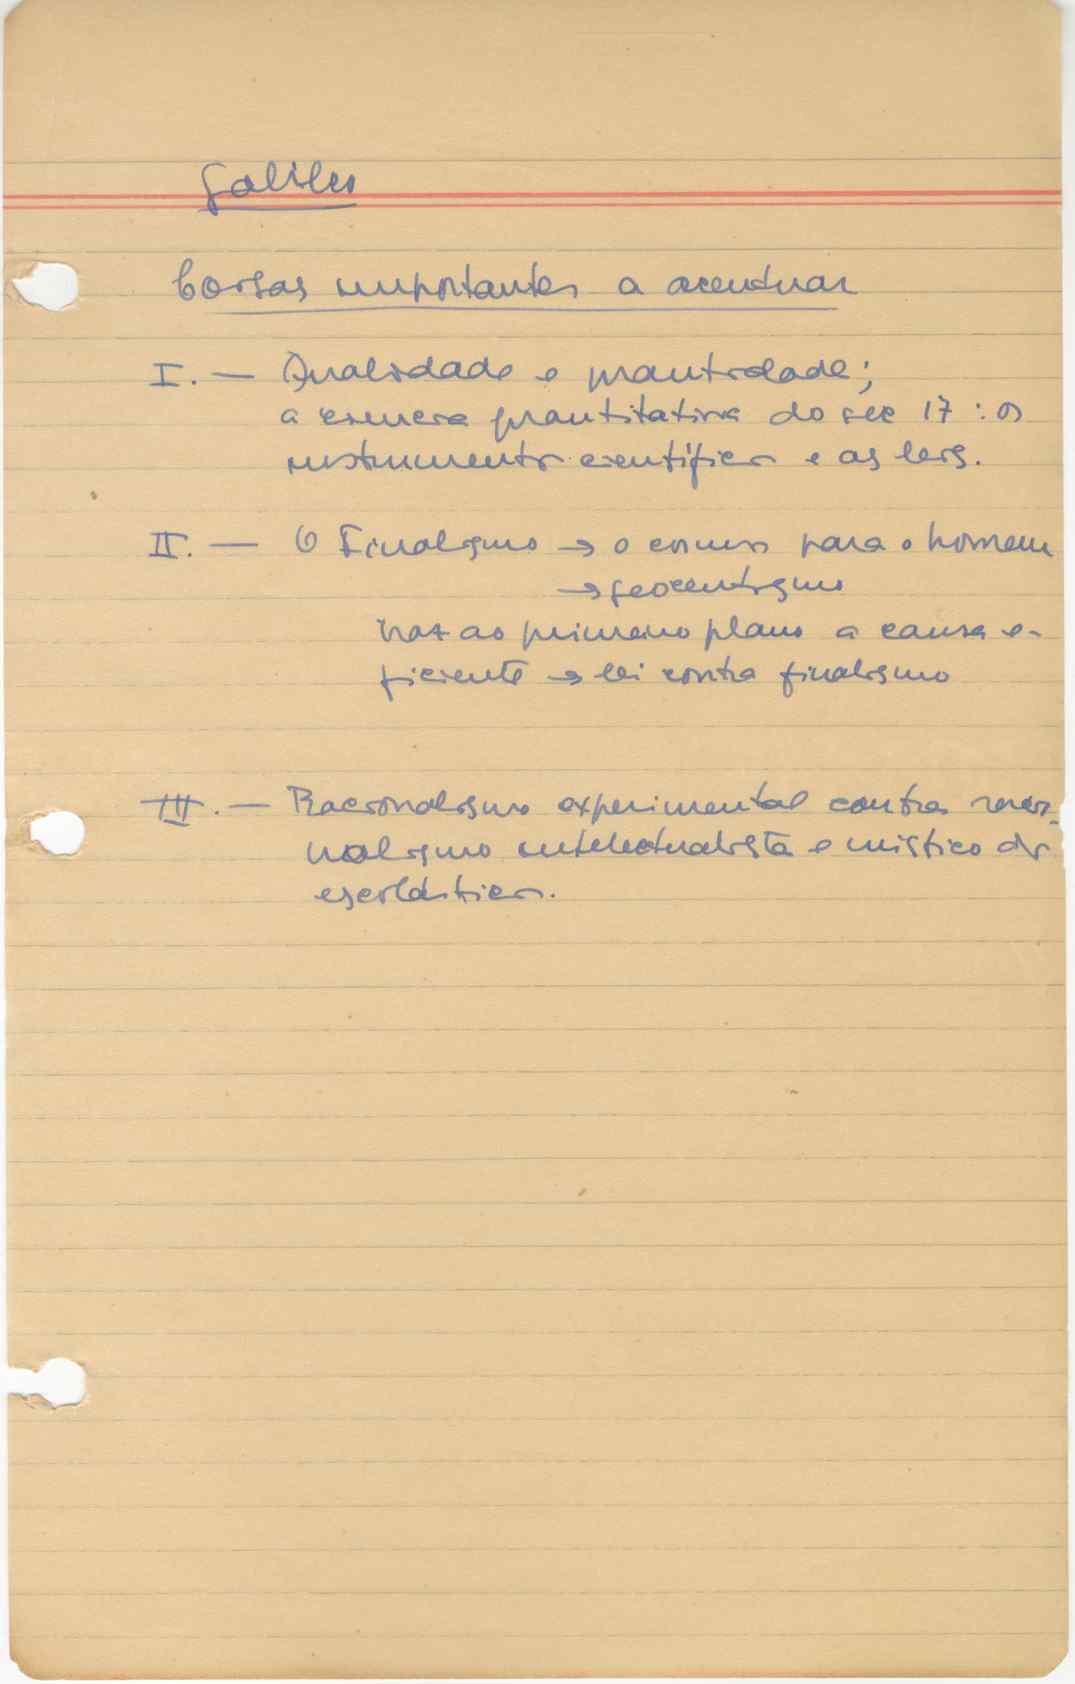 Galileu
Coisas importantes a acentuar
I. — Qualidade e quantidade;
a ciencia quantitativa do sec 17 : os
instrumentos cientificos e as leis.
II. — O Finalismo → o cosmos para o homem
→ geocentrismo
traz ao primeiro plano a causa e-
ficiente → lei contra finalismo
III. — Racionalismo experimental contra racio-
nalismo intelectualista e mistico dos
escolásticos.